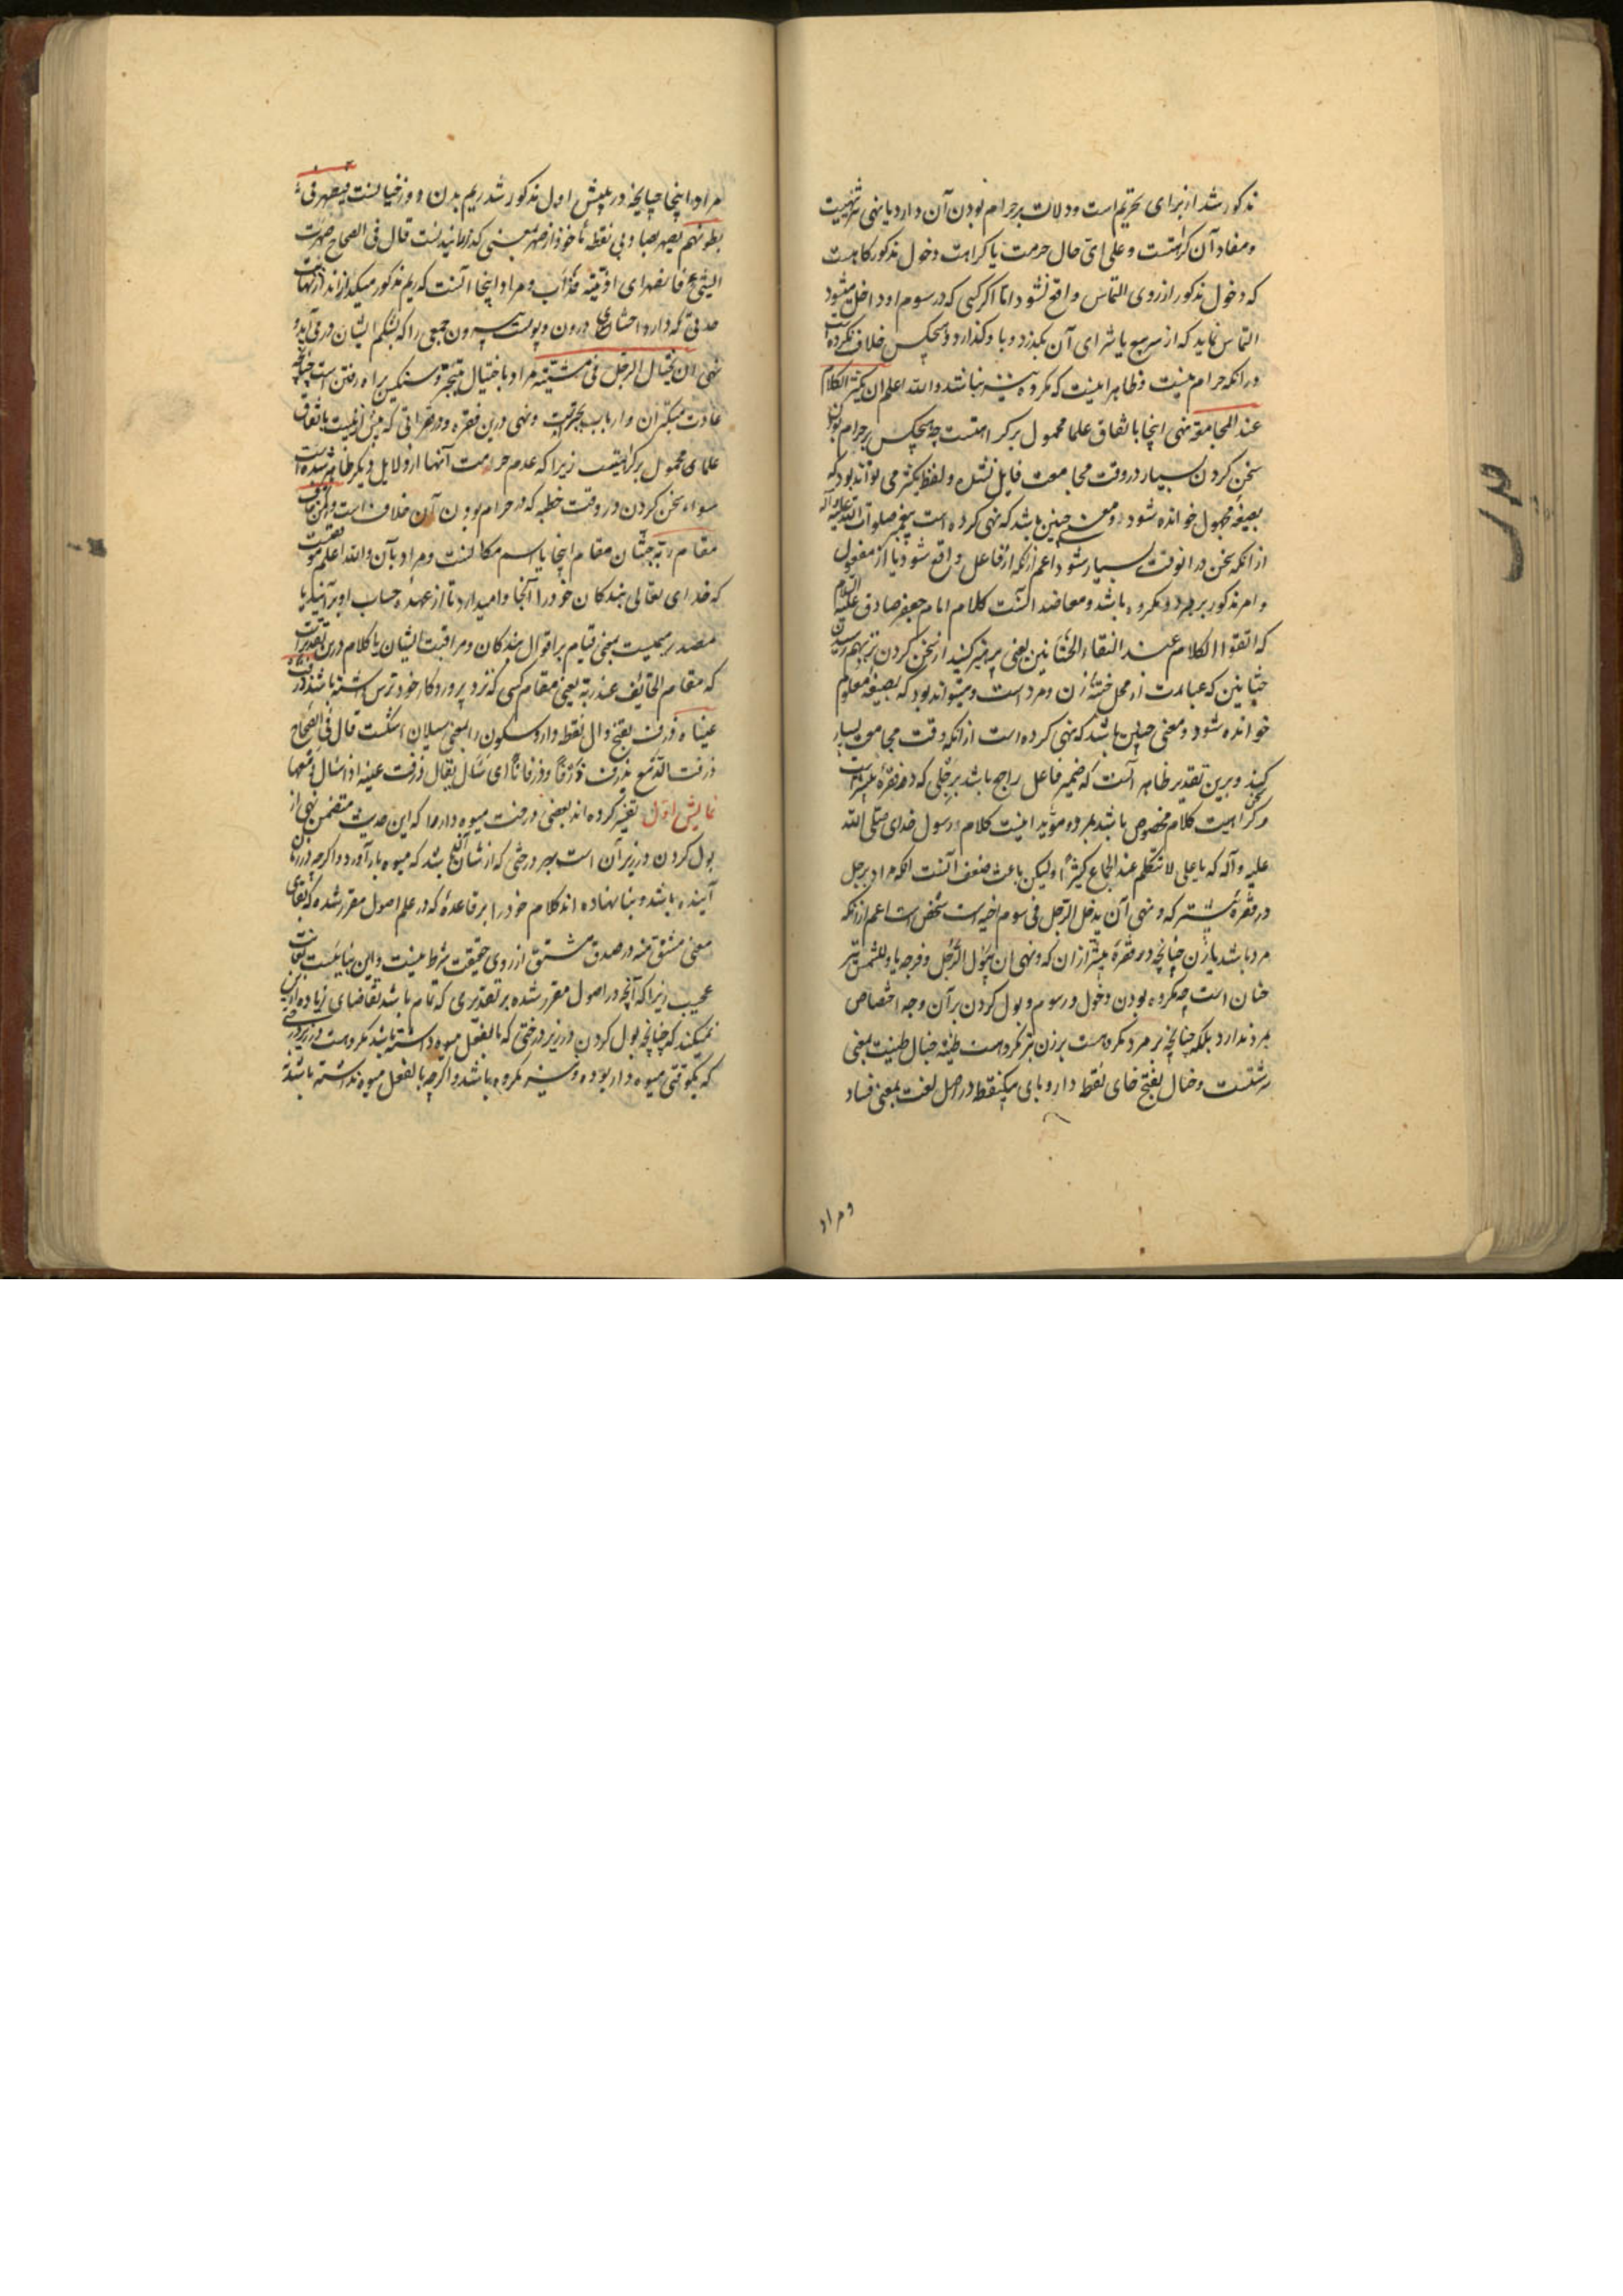 مذکور شد از برای تحریم است و دلالت بر حرام بودن آن دارد یا نهی تنزیهیست
و مفاد آن کراهتست و علی ای حال حرمت یا کراهت دخول مذکور گاهیست
که دخول مذکور از روی التماس واقع نشود اما اگر کسی که در سوم او داخل میشود
التماس نماید که از سر بیع یا شرای آن بگذرد و باو گذارد و هیچکس خلاف نکرده است
در آنکه حرام نیست و ظاهرا اینست که مکروه نیز نباشد والله اعلم ان یکثر الکلام
عند المجامعة نهی اینجا باتفاق علما محمول بر کراهتست چه هیچکس بر حرام بودن
سخن کردن بسیار در وقت مجامعت قایل نشده و لفظ یکثر می تواند بود که
بصیغهٔ مجهول خوانده شود و معنی چنین باشد که نهی کرده است پیغمبر صلوات الله علیه و آله
از آنکه سخن در آنوقت بسیار شود اعم از آنکه از فاعل واقع شود یا از مفعول
و امر مذکور بر هر دو مکروه باشد و معاضد اینست کلام امام جعفر صادق علیه السلام
که اتقوا الکلام عند التقاء الختانین یعنی پرهیز کنید از سخن کردن نزد بهم رسیدن
ختانین که عبارت از محل ختنهٔ زن و مرد است و میتواند بود که بصیغهٔ معلوم
خوانده شود و معنی چنین باشد که نهی کرده است از آنکه وقت مجامعت بسیار سخن
کند و برین تقدیر ظاهر آنست که ضمیر فاعل راجع باشد برجلی که در فقرهٔ پیشتر است
و کراهیت کلام مخصوص باشد بمرد و مؤید اینست کلام رسول خدای صلی الله
علیه و آله که یا علی لا تتکلم عند الجماع کثیرا و لیکن باعث ضعف آنست آنکه مراد برجل
در فقرهٔ پیشتر که و نهی ان یدخل الرجل فی سوم اخیه است شخص است اعم از آنکه
مرد باشد یا زن چنانچه در فقرهٔ پیشتر از آن که و نهی ان یبول الرجل و فرجه باد للشمس نیز
چنان است چه مکروه بودن دخول در سوم و بول کردن بر آن وجه اختصاص
بمرد ندارد بلکه چنانچه بر مرد مکروه است بر زن نیز مکروه است طینة خبال طینت بمعنی
سرشتست و خبال بفتح خای نقطه دار و بای یکنقطه در اصل لغت بمعنی فساد
و مراد
مراد اینجا چنانچه در پیش اول مذکور شد ریم بدن دوزخیانست یصهر فی
بطونهم یصهر بصاد بی نقطه مأخوذ از صهر بمعنی گدازانیدنست قال فی الصحاح صهرت
الشیء فانصهر ای اذبته فذاب و مراد اینجا آنست که ریم مذکور میگدازاند از نهایت
حدتی که دارد احشای درون و پوست بیرون جمعی را که بشکم ایشان در می آید و
نهی ان یختال الرجل فی مشیته مراد باختیال تبختر و سنگین براه رفتن است چنانچه
عادت متکبران و ارباب تجبرست و نهی درین فقره و در فقراتی که پیش ازینست باتفاق
علمای محمول بر کراهیتست زیرا که عدم حرمت آنها از دلایل دیگر ظاهر شده است
سواء سخن کردن در وقت خطبه که در حرام بودن آن خلاف است و لمن خاف
مقام ربه جنتان مقام اینجا یا اسم مکانست و مراد بآن والله اعلم موقفیست
که خدای تعالی بندگان خود را آنجا وامیدارد تا از عهدهٔ حساب او برآیند یا
مصدر میمیست بمعنی قیام بر اقوال بندگان و مراقبت ایشان یا کلام درین تقدیر است
که مقام الخائف عند ربه یعنی مقام کسی که نزد پروردگار خود ترس داشته باشد ذرفت
عیناه ذرف بفتح ذال نقطه دار و سکون را بمعنی سیلان اشکست قال فی الصحاح
ذرفت الدمع یذرف ذرفا و ذرفانا ای سال یقال ذرفت عینه اذا سال دمعها
نمایش اول تغییر کرده اند بعضی درخت میوه دار را که این حدیث متضمن نهی از
بول کردن در زیر آن است بهر درختی که از شأن آن باشد که میوه بار آورد و اگر چه در زمان
آینده باشد و بنا نهاده اند کلام خود را بر قاعدهٔ که در علم اصول مقرر شده که بقای
معنی مشتق منه در صدق مشتق از روی حقیقت شرط نیست و این بناییست بغایت
عجیب زیرا که آنچه در اصول مقرر شده بر تقدیری که تمام باشد تقاضای زیاده ازین
نمیکند که چنانچه بول کردن در زیر درختی که بالفعل میوه داشته باشد مکروهست در زیر درختی
که یکوقتی میوه دار بوده و نیز مکروه باشد و اگر چه بالفعل میوه نداشته باشد